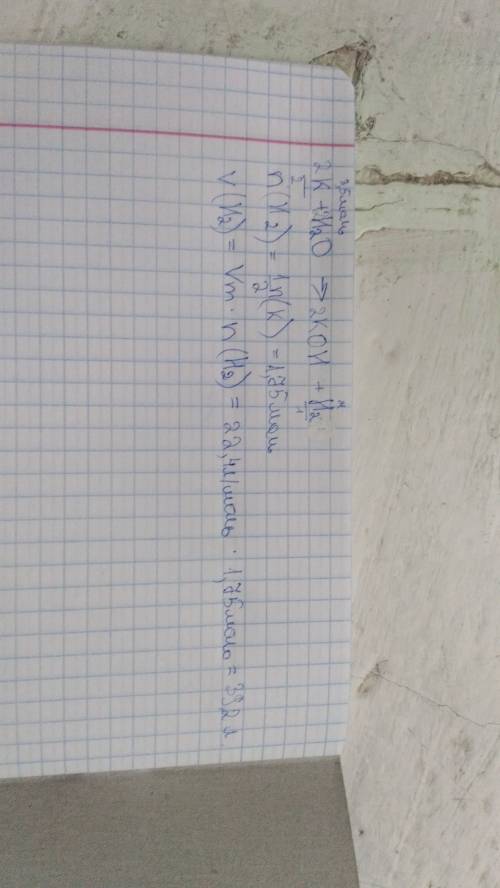 3,5моль x
2K + 2H₂O → 2KOH + H₂
2 1
n(H₂) = 1/2 n(K) = 1,75 моль
V(H₂) = Vm · n(H₂) = 22,4л/моль · 1,75моль = 392 л.